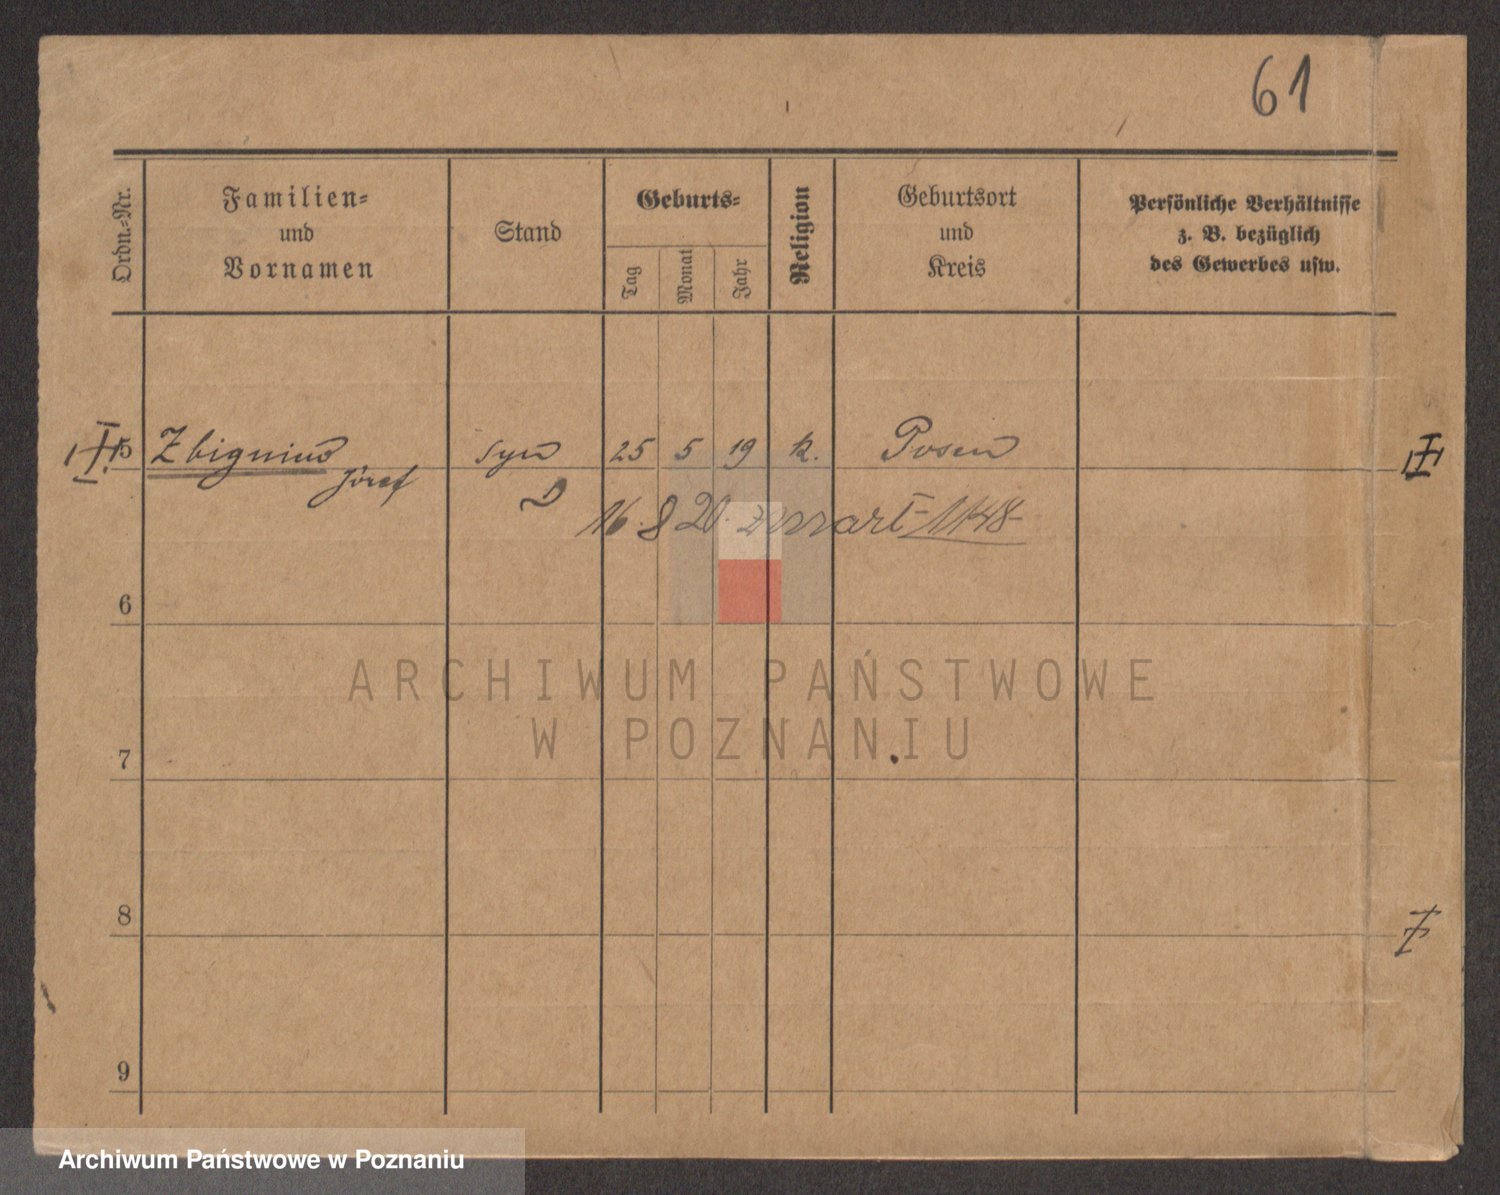 61
Ordn.-Nr.
Familien-
und
Vornamen
Stand
Geburts-
Tag
Monat
Jahr
Religion
Geburtsort
und
Kreis
Persönliche Verhältnisse
z. B. bezüglich
des Gewerbes usw.
5 Zbigniew syn 25 5 19 k. Posen
Józef
16. 8 20. zmarł 1148
6
ARCHIWUM PAŃSTWOWE
W POZNANIU
7
8
9
Archiwum Państwowe w Poznaniu